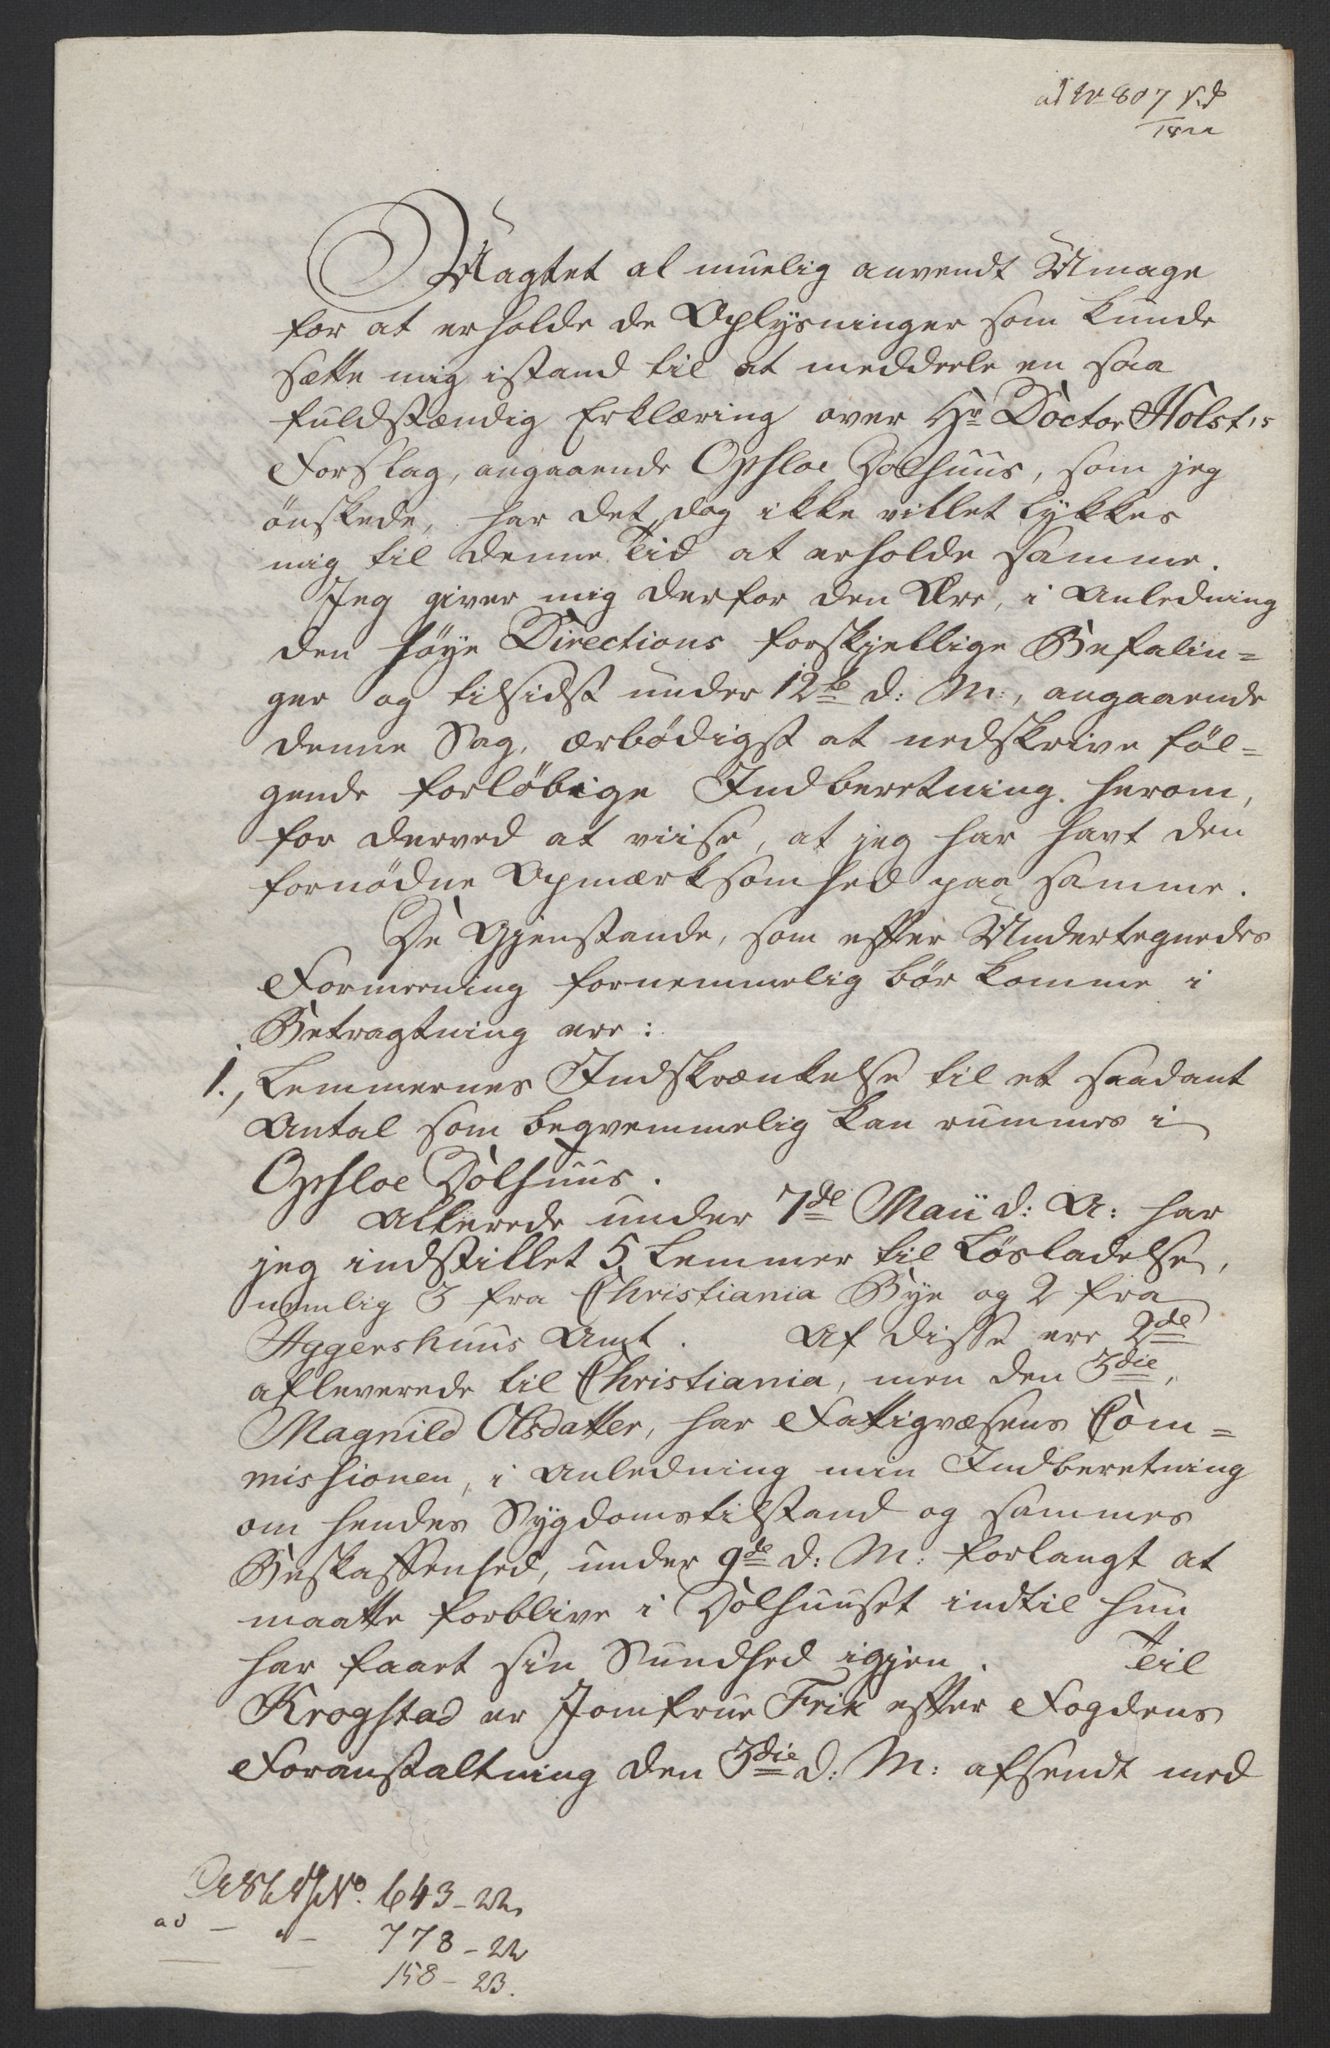 ad No 807 
1822
Uagtet al muelig anvendt Umage
for at erholde de Oplysninger som kunde
sætte mig istand til at meddeele en saa
fuldstændig Erklæring over Hr Doctor Holst's
Forslag, angaaende Opsloe Dolhuus, som jeg
ønskede, har det dog ikke villet lykkes
mig til denne Tid at erholde samme.
Jeg giver mig derfor den Ære, i Anledning
den høye Directions forskjellige Befalin=
ger og tilsidst under 12te d: M:, angaaende
denne Sag, ærbødigst at nedskrive føl=
gende forløbige Indberetning herom,
for derved at viise, at jeg har havt den
fornødne Opmærksomhed paa samme.
De Gjenstande, som efter Undertegnedes
Formeening fornemmelig bør komme i
Betragtning ere:
1., Lemmernes Indskrænkelse til et saadant
Antal som beqvemmelig kan rummes i
Opsloe Dolhuus.
Allerede under 7de Maii d: A: har
jeg indstillet 5 Lemmer til Løsladelse,
nemlig 3 fra Christiania Bye og 2 fra
Aggershuus Amt. Af disse ere 2de
afleverede til Christiania, men den 3die,
Magnild Olsdatter, har Fattigvæsens Com=
missionen, i Anledning min Indberetning
om hendes Sygdomstilstand og sammes
Beskaffenhed, under 9de d: M: forlangt at
maatte forblive i Dolhuuset indtil hun
har faaet sin Sundhed igjen. Til
Krogstad er Jomfrue Frik efter Fogdens
Foranstaltning den 3die d: M: afsendt med
No. 643 - 22.
ad — " — 778 - 22
— — 158 - 23.